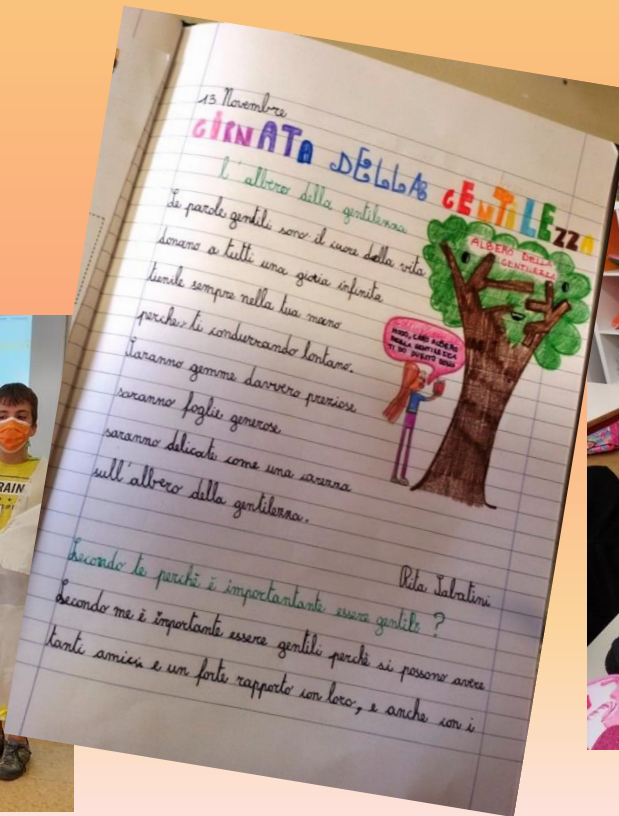 13 Novembre
GIRNATA DELLA GENTILEZZA
l'albero della gentilezza
Le parole gentili sono il cuore della vita
donano a tutti una gioia infinita
tienile sempre nella tua mano
perche ti condurrando lontano.
Saranno gemme davvero preziose
saranno foglie generose
saranno delicate come una carezza
sull'albero della gentilezza.
Rita Sabatini
ALBERO DELLA
GENTILEZZA
CARO ALBERO
DELLA GENTILEZZA
TI DO SUBITO
Secondo te perchè è importantante essere gentile?
Secondo me è importante essere gentili perchè si possono avere
tanti amici e un forte rapporto con loro, e anche con i
RAIN